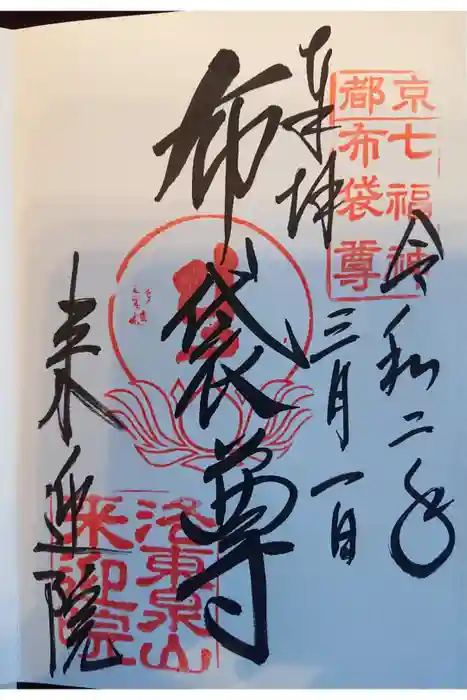 奉拝
令和二年
三月一日
布袋尊
来迎院
京七福神
都布袋尊
洛東泉山
来迎院